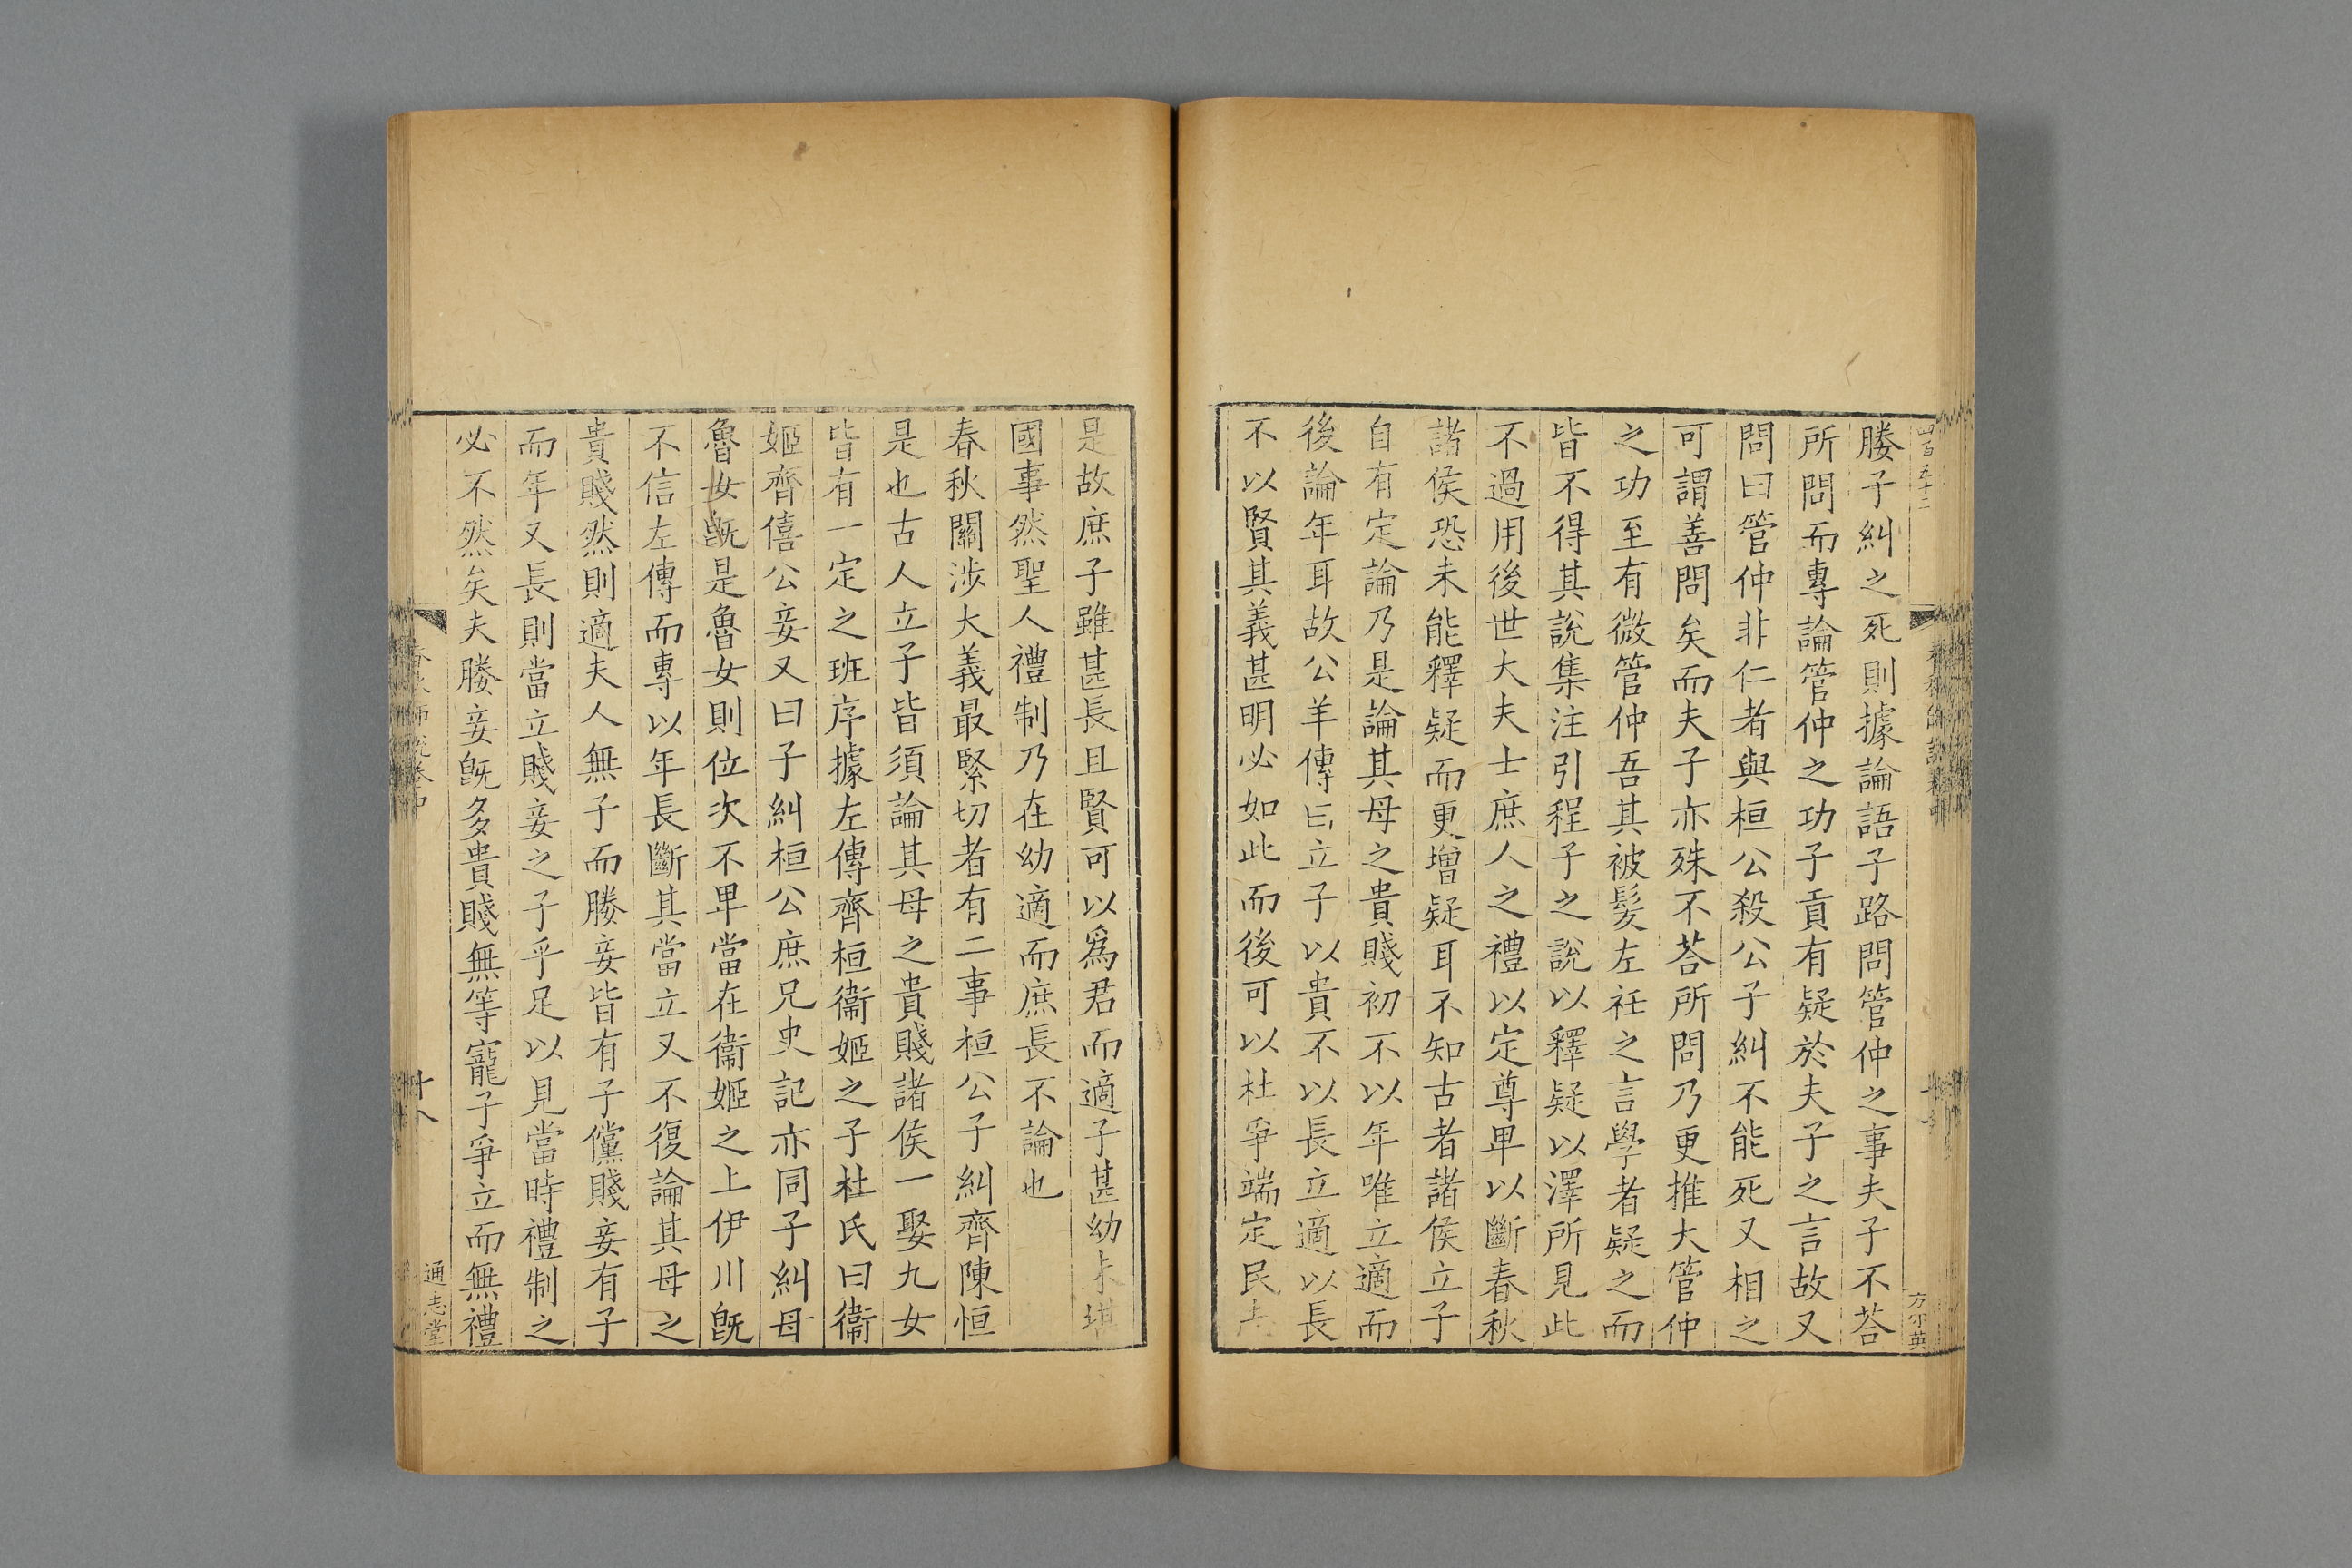 四百五十二
媵子糾之死則據論語子路問管仲之事夫子不荅
所問而專論管仲之功子貢有疑於夫子之言故又
問曰管仲非仁者與桓公殺公子糾不能死又相之
可謂善問矣而夫子亦殊不荅所問乃更推大管仲
之功至有微管仲吾其被髮左衽之言學者疑之而
皆不得其說集注引程子之說以釋疑以澤所見此
不過用後世大夫士庶人之禮以定尊卑以斷春秋
諸侯恐未能釋疑而更增疑耳不知古者諸侯立子
自有定論乃是論其母之貴賤初不以年唯立適而
後論年耳故公羊傳曰立子以貴不以長立適以長
不以賢其義甚明必如此而後可以杜爭端定民
方尔英
是故庶子雖甚長且賢可以爲君而適子甚幼未堪
國事然聖人禮制乃在幼適而庶長不論也
春秋關涉大義最緊切者有二事桓公子糾齊陳恒
是也古人立子皆須論其母之貴賤諸侯一娶九女
皆有一定之班序據左傳齊桓衞姬之子杜氏曰衞
姬齊僖公妾又曰子糾桓公庶兄史記亦同子糾母
魯女旣是魯女則位次不卑當在衞姬之上伊川旣
不信左傳而專以年長斷其當立又不復論其母之
貴賤然則適夫人無子而媵妾皆有子儻賤妾有子
而年又長則當立賤妾之子乎足以見當時禮制之
必不然矣夫媵妾旣多貴賤無等寵子爭立而無禮
春秋師說卷中
十八
通志堂